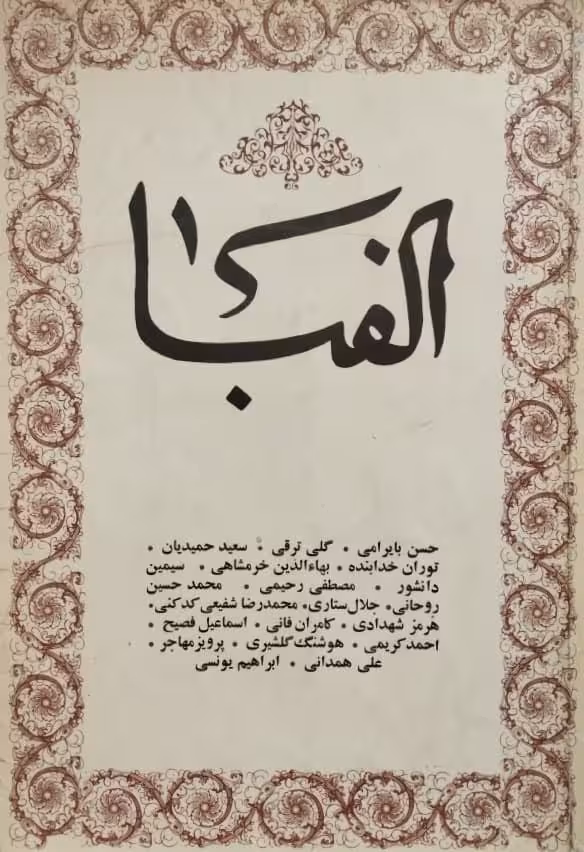 الفبا
۱
حسن بایرامی • گلی ترقی • سعید حمیدیان •
توران خدابنده • بهاءالدین خرمشاهی • سیمین
دانشور • مصطفی رحیمی • محمد حسین
روحانی • جلال ستاری • محمدرضا شفیعی کدکنی •
هرمز شهدادی • کامران فانی • اسماعیل فصیح •
احمد کریمی • هوشنگ گلشیری • پرویز مهاجر •
علی همدانی • ابراهیم یونسی